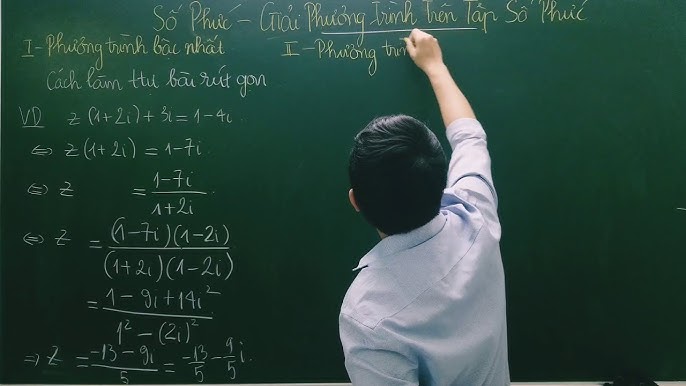 Số Phức - Giải Phương Trình Trên Tập Số Phức
I - Phương trình bậc nhất
Cách làm ttự bài rút gọn
VD z(1+2i)+3i=1-4i.
⇔ z(1+2i) = 1-7i.
⇔ z = \frac{1-7i}{1+2i}
⇔ z = \frac{(1-7i)(1-2i)}{(1+2i)(1-2i)}
= \frac{1-9i+14i^2}{1^2-(2i)^2}
⇒ z = \frac{-13-9i}{5} = \frac{-13}{5} - \frac{9}{5}i.
II - Phương trìn